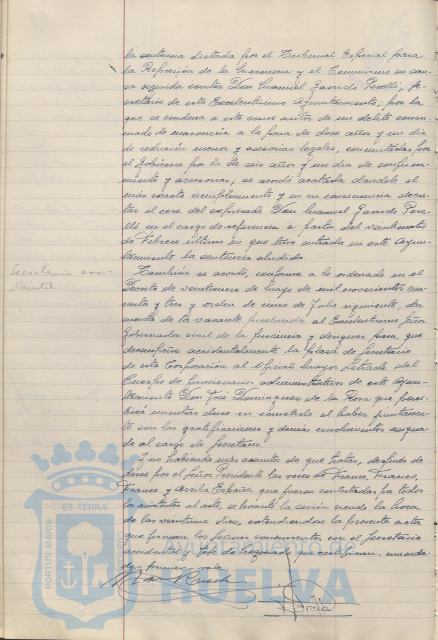 la sentencia dictada por el Tribunal Especial para
la Represión de la Masonería y el Comunismo en cau-
sa seguida contra Don Manuel Garrido Perelló, Se-
cretario de este Excelentísimo Ayuntamiento, por la
que se condena a este como autor de un delito consu-
mado de masonería a la pena de doce años y un día
de reclusión menor y accesorias legales, conmutadas por
el Gobierno por la de seis años y un día de confina-
miento y accesorias, se acordó acatarla dándole el
más exacto cumplimiento y en su consecuencia decre-
tar el cese del expresado Don Manuel Garrido Pere-
lló en el cargo de referencia a partir del veinticuatro
de Febrero último en que tuvo entrada en este Ayun-
tamiento la sentencia aludida.
Secretario acci-
dental
También se acordó, conforme a lo ordenado en el
Decreto de veintinueve de Mayo de mil novecientos cua-
renta y tres y orden de cinco de Julio siguiente, dar
cuenta de la vacante producida al Excelentísimo Señor
Gobernador civil de la provincia y designar para que
desempeñe accidentalmente la plaza de Secretario
de esta Corporación al Oficial Mayor Letrado del
Cuerpo de funcionarios administrativos de este Ayun-
tamiento Don José Domínguez de la Rosa que perci-
birá mientras dure su cometido el haber juntamen-
te con las gratificaciones y demás emolumentos asigna-
do al cargo de Secretario.
Y no habiendo más asuntos de que tratar, después de
darse por el Señor Presidente las voces de Franco, Franco,
Franco y Arriba España que fueron contestadas por todos
los asistentes al acto, se levantó la sesión siendo la hora
de las veintiuna diez, extendiéndose la presente acta
que firman los Señores concurrentes con el Secretario
accidental y Jefe de Negociado que certifican.
ET TERRÆ
PORTUS MARIS
HUELVA